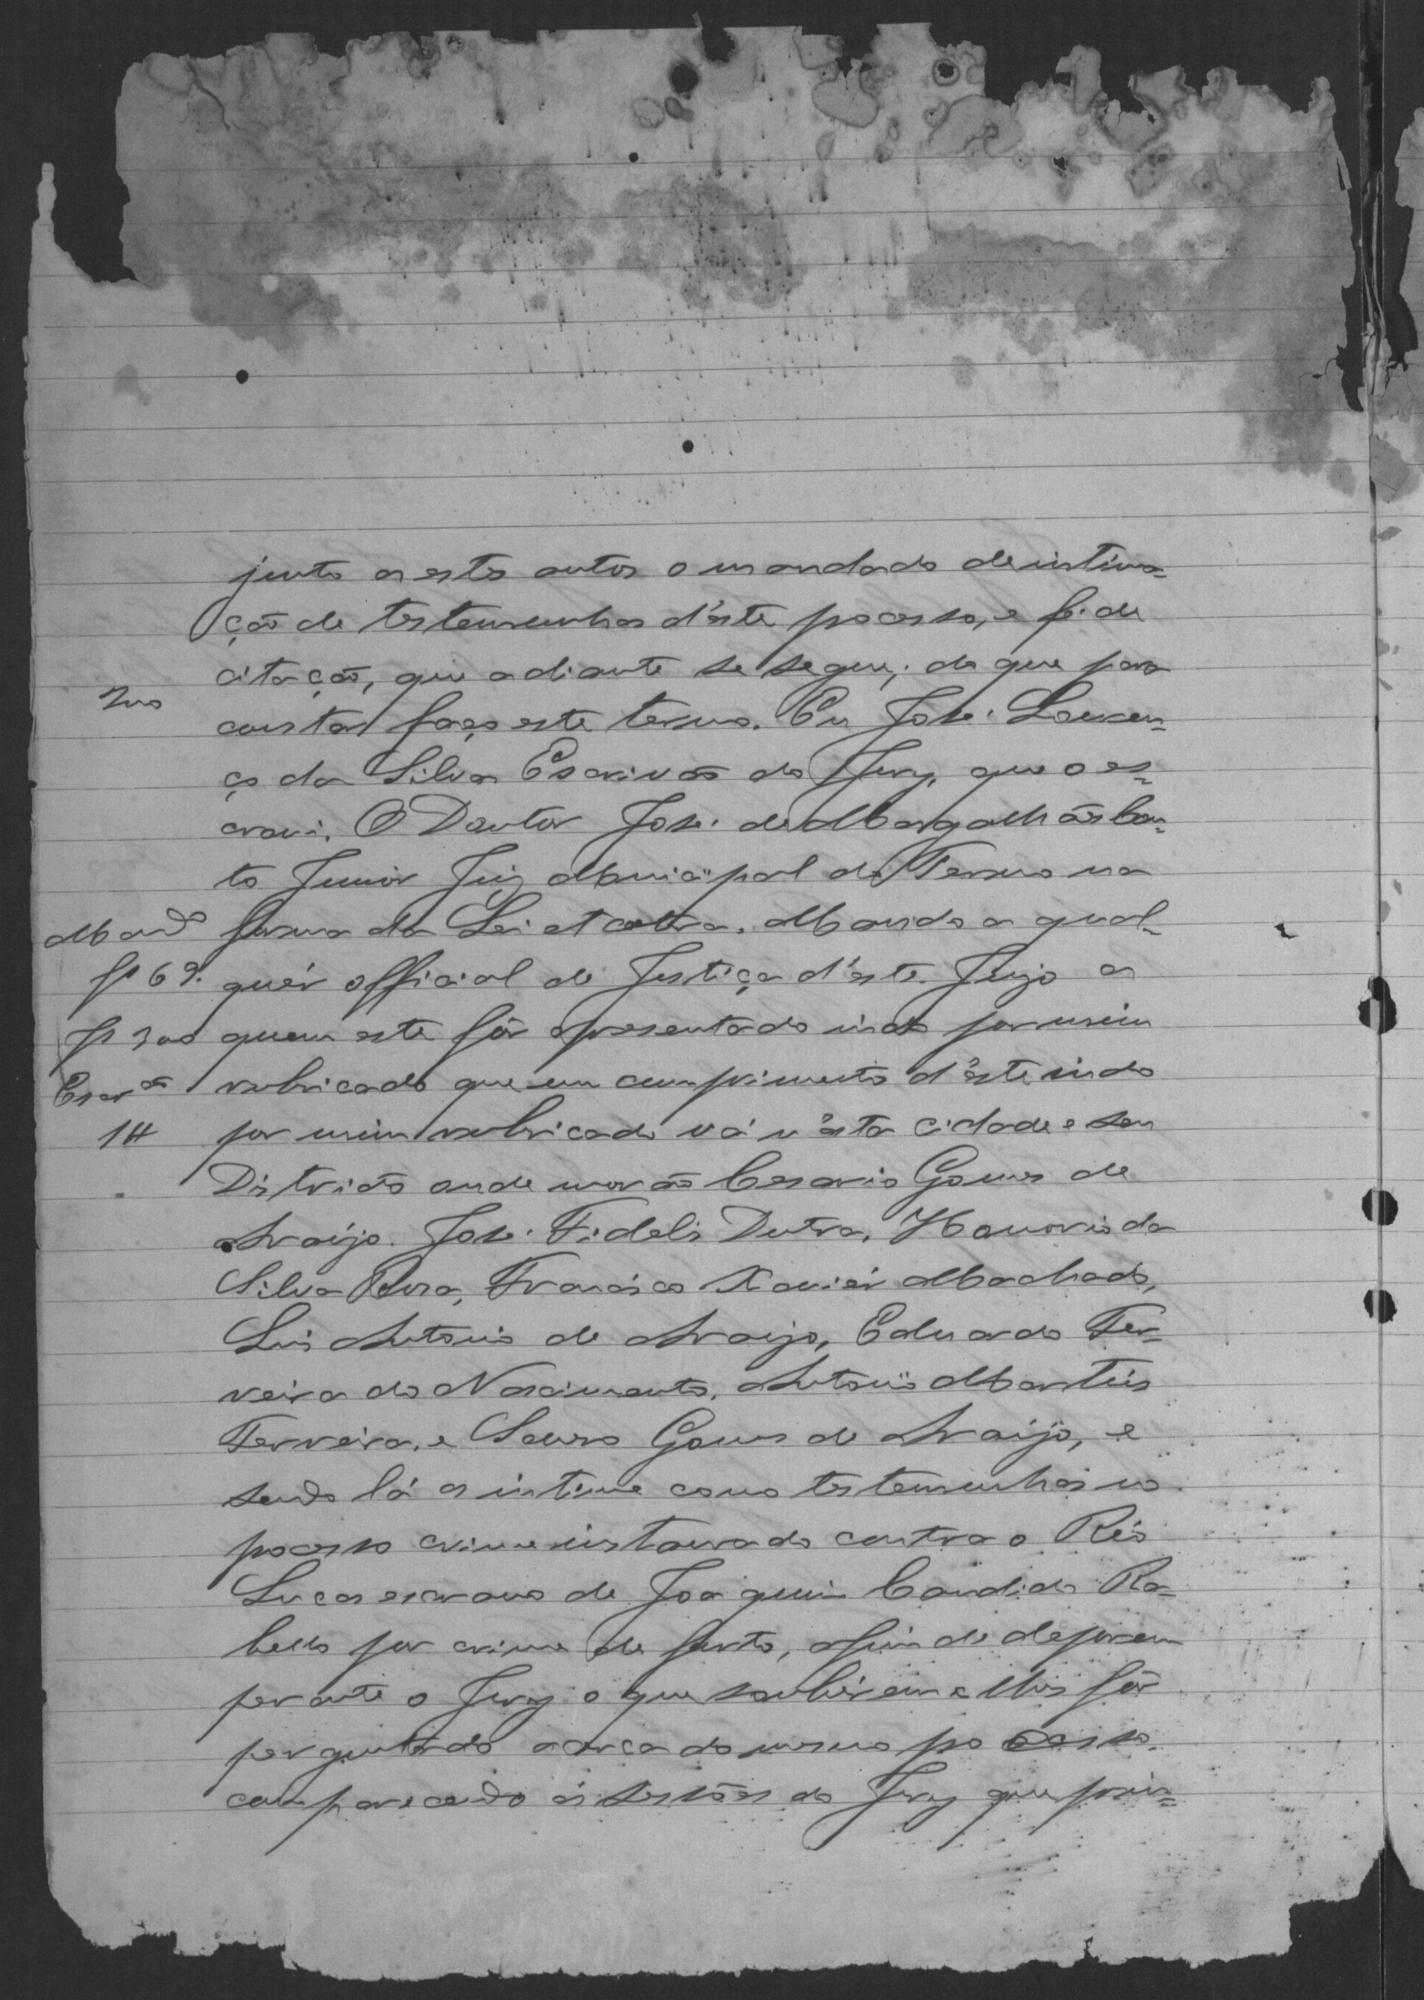 junto a estes autos o mandado de intima=
ção de testemunhas d'este pocesso, e fé de
citação, que adiante se segue; de que para
200
constar faço este termo. Eu José Louren=
ço da Silva Escrivão do Jury, que o es=
crevi. O Doutor José de Magalhães Cou=
to Junior Juiz Municipal do Termo na
Mand.º forma da Lei et cetera. Mando a qual=
fs 69. quér official de Justiça d'este Juizo a
fs 200 quem este fôr apresentado indo por mim
Escr.ão rubricado que em cumprimento d'este indo
14 por mim rubricado vá n'esta cidade e seu
Districto onde morão Cesario Gomes de
Araújo. José Fidelis Dutra, Honorio da
Silva Rosa, Francisco Xaviér Machado,
Luis Antonio de Araujo, Eduardo Fer=
reira do Nascimento, Antonio Martins
Ferreira, e Lauro Gomes de Araújo, e
sendo lá os intime como testemunhas no
pocesso crime instaurado contra o Réo
Lucas escravo de Joaquim Candido Ra=
bello por crime de furto, afim de deporem
perante o Jury o que soubérem e lhes fôr
perguntado acerca do mesmo pocesso.
comparecendo ás sessões do Jury que prin=